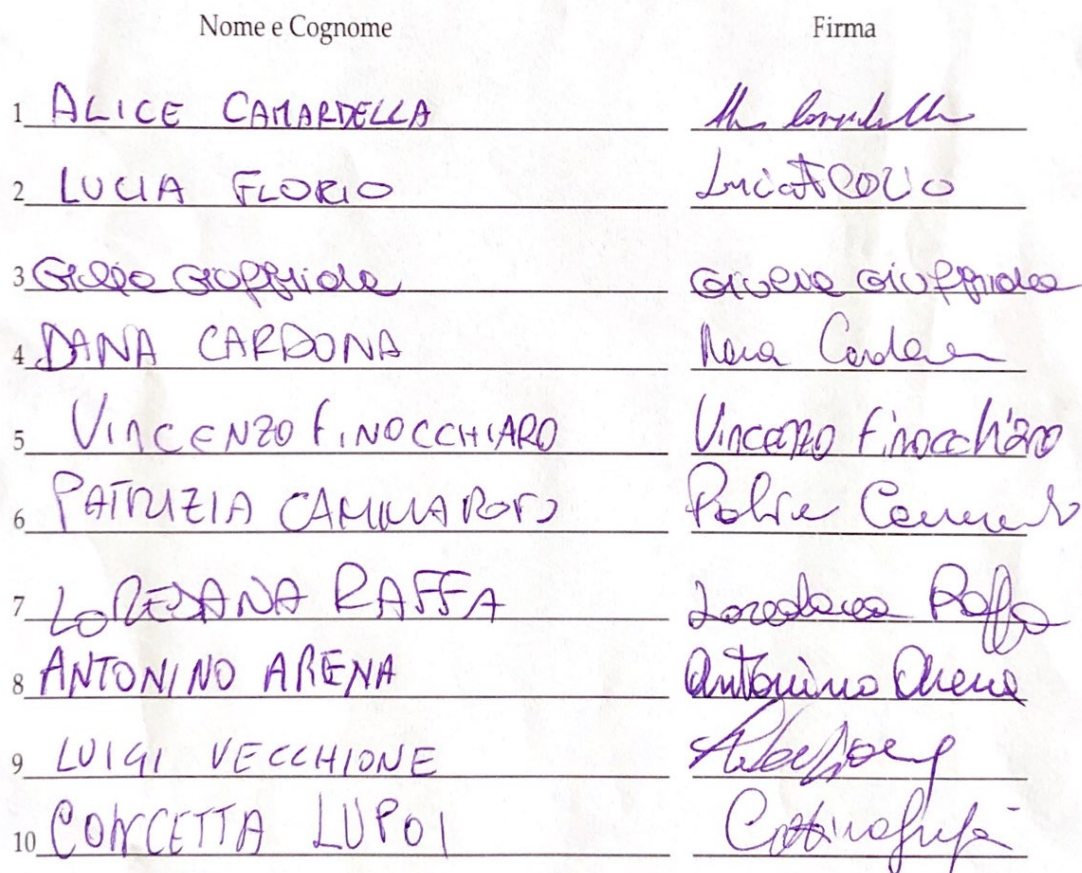 Nome e Cognome Firma
1 ALICE CAMARDELLA
2 LUCIA FLORIO Lucia Florio
3 Giulia Giuffrida Giulia Giuffrida
4 DANA CARDONA Dana Cardona
5 VINCENZO FINOCCHIARO Vincenzo Finocchiaro
6 PATRIZIA CAMMAROTO
7 LOREDANA RAFFA Loredana Raffa
8 ANTONINO ARENA Antonino Arena
9 LUIGI VECCHIONE
10 CONCETTA LUPOI